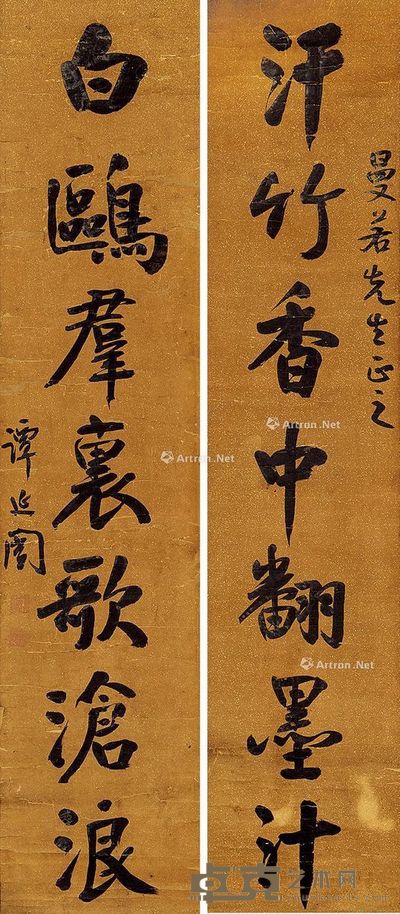 曼若先生正之
汗竹香中翻墨汁
白鷗羣裏歌滄浪
譚延闓
Artron.Net
Artron.Net
Artron.Net
卓克艺术网